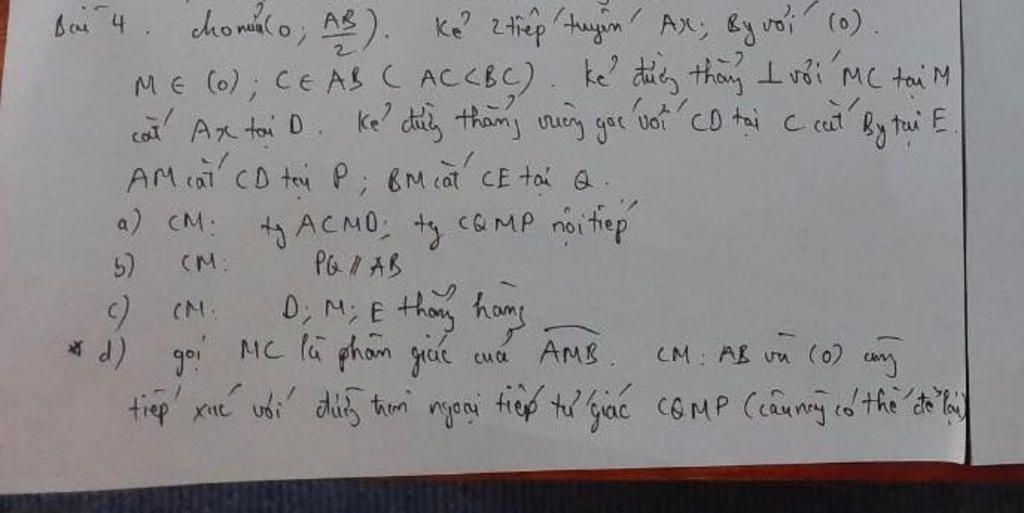 Bài 4. cho nửa (O; AB/2). Kẻ 2 tiếp tuyến Ax; By với (O).
M ∈ (O); C ∈ AB (AC<BC). Kẻ đường thẳng ⊥ với MC tại M
cắt Ax tại D. Kẻ đường thẳng vuông góc với CD tại C cắt By tại E.
AM cắt CD tại P; BM cắt CE tại Q.
a) CM: tg ACMD; tg CQMP nội tiếp
b) CM: PQ // AB
c) CM: D; M; E thẳng hàng
* d) gọi MC là phân giác của AMB. CM: AB và (O) cùng
tiếp xúc với đường tròn ngoại tiếp tứ giác CQMP (câu này có thể để lại)